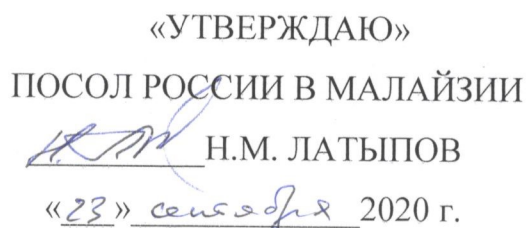 «УТВЕРЖДАЮ»
ПОСОЛ РОССИИ В МАЛАЙЗИИ
Н.М. ЛАТЫПОВ
«23» сентября 2020 г.